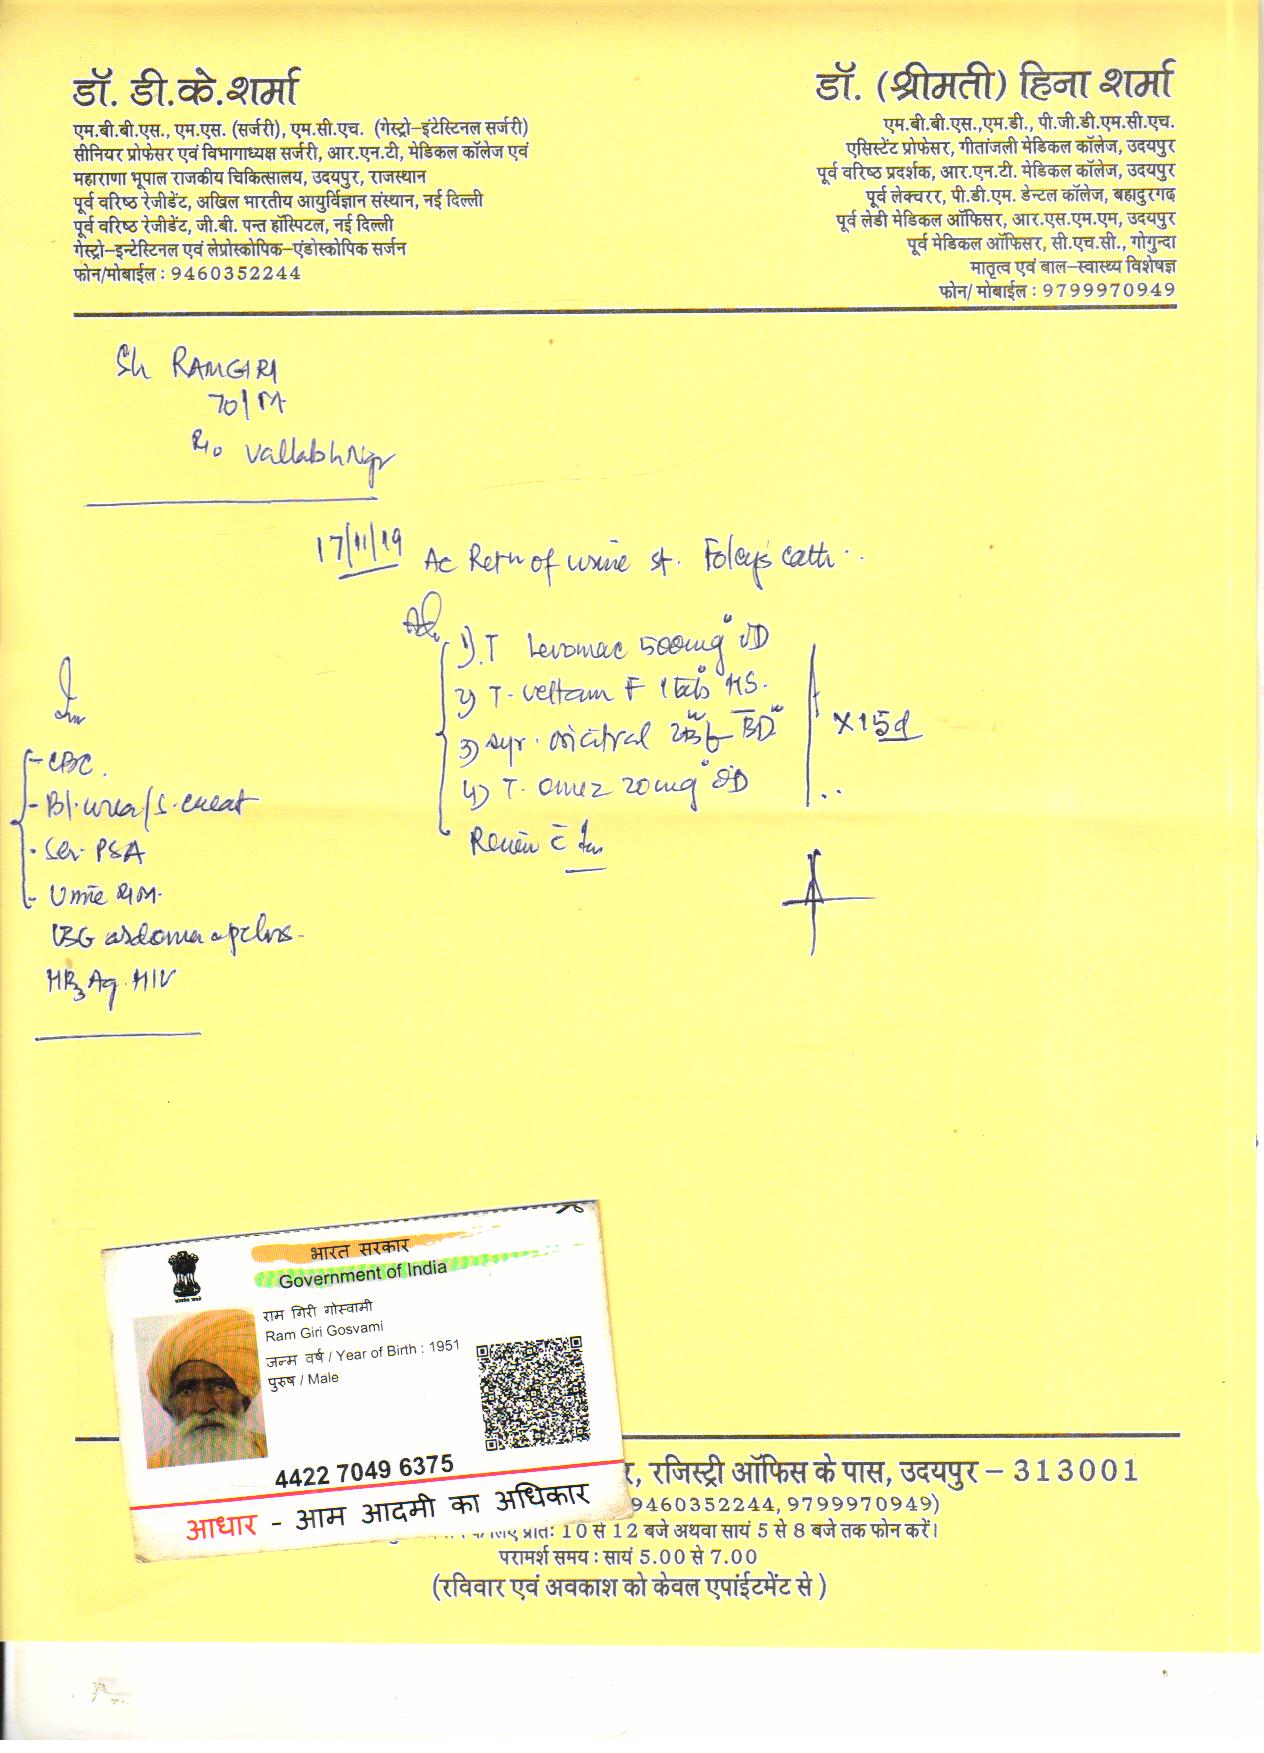 डॉ. डी.के.शर्मा
एम.बी.बी.एस., एम.एस. (सर्जरी), एम.सी.एच. (गेस्ट्रो-इंटेस्टिनल सर्जरी)
सीनियर प्रोफेसर एवं विभागाध्यक्ष सर्जरी, आर.एन.टी, मेडिकल कॉलेज एवं
महाराणा भूपाल राजकीय चिकित्सालय, उदयपुर, राजस्थान
पूर्व वरिष्ठ रेजीडेंट, अखिल भारतीय आयुर्विज्ञान संस्थान, नई दिल्ली
पूर्व वरिष्ठ रेजीडेंट, जी.बी. पन्त हॉस्पिटल, नई दिल्ली
गेस्ट्रो-इन्टेस्टिनल एवं लेप्रोस्कोपिक-एंडोस्कोपिक सर्जन
फोन/मोबाईल : 9460352244
डॉ. (श्रीमती) हिना शर्मा
एम.बी.बी.एस.,एम.डी., पी.जी.डी.एम.सी.एच.
एसिस्टेंट प्रोफेसर, गीतांजली मेडिकल कॉलेज, उदयपुर
पूर्व वरिष्ठ प्रदर्शक, आर.एन.टी. मेडिकल कॉलेज, उदयपुर
पूर्व लेक्चरर, पी.डी.एम. डेन्टल कॉलेज, बहादुरगढ
पूर्व लेडी मेडिकल ऑफिसर, आर.एस.एम.एम, उदयपुर
पूर्व मेडिकल ऑफिसर, सी.एच.सी., गोगुन्दा
मातृत्व एवं बाल-स्वास्थ्य विशेषज्ञ
फोन/ मोबाईल : 9799970949
Sh RAMGIRI
70/M
R/o VallabhNgr
17/11/19 Ac Retn of urine st. Foley's cath
Adv
1) T Levomac 500mg OD
2) T. Veltam F 1 tab HS.
3) Syr. 2tsf BD
4) T. Omez 20mg OD
x 15d
Review c̄ Inv
Inv
- CBC.
- Bl. urea/S. creat
- Ser PSA
- Urine R/M.
USG abdomen & pelvis-
HBsAg. HIV
भारत सरकार
Government of India
राम गिरी गोस्वामी
Ram Giri Gosvami
जन्म वर्ष / Year of Birth : 1951
पुरुष / Male
4422 7049 6375
आधार - आम आदमी का अधिकार
र, रजिस्ट्री ऑफिस के पास, उदयपुर – 313001
9460352244, 9799970949)
लिए प्रातः 10 से 12 बजे अथवा सायं 5 से 8 बजे तक फोन करें।
परामर्श समय : सायं 5.00 से 7.00
(रविवार एवं अवकाश को केवल एपांईटमेंट से )